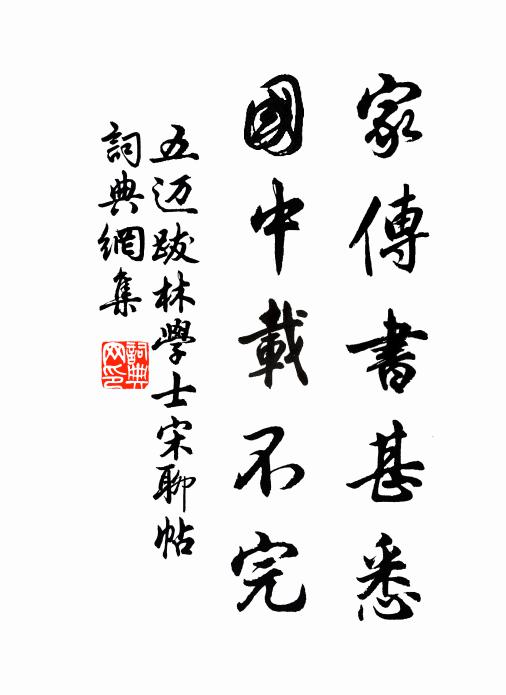 家傳書甚悉
國中載不完
五迈跋林學士宋聊帖
詞典網集
詞典網印